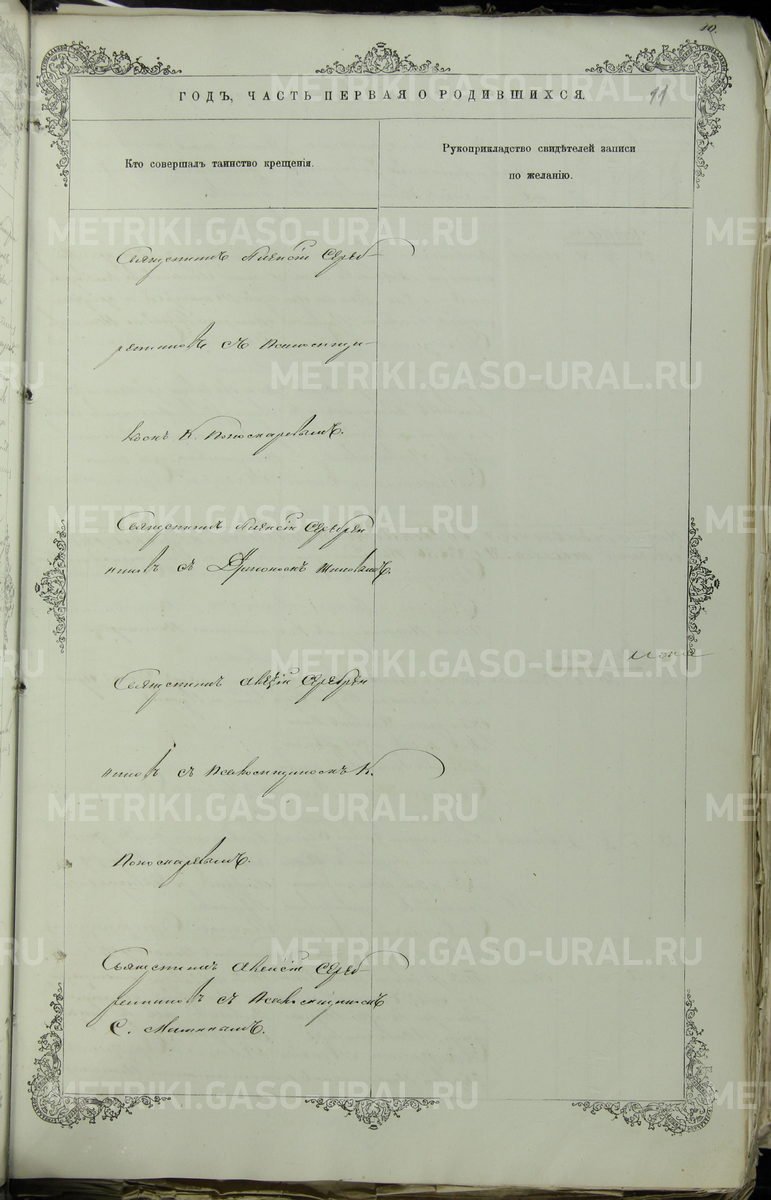 10.
91
ГОДЪ, ЧАСТЬ ПЕРВАЯ О РОДИВШИХСЯ.
Кто совершалъ таинство крещенія.
Рукоприкладство свидѣтелей записи
по желанію.
Священникъ Алексій Сереб-
ренниковъ съ Псаломщи-
комъ К. Пономаревымъ.
Священникъ Алексій Серебрен
никовъ съ Діакономъ
Священникъ Алексій Серебрен
никовъ съ Псаломщикомъ К.
Пономаревымъ.
Священникъ Алексій Сереб-
ренниковъ съ Псаломщикомъ
С.
METRIKI.GASO-URAL.RU